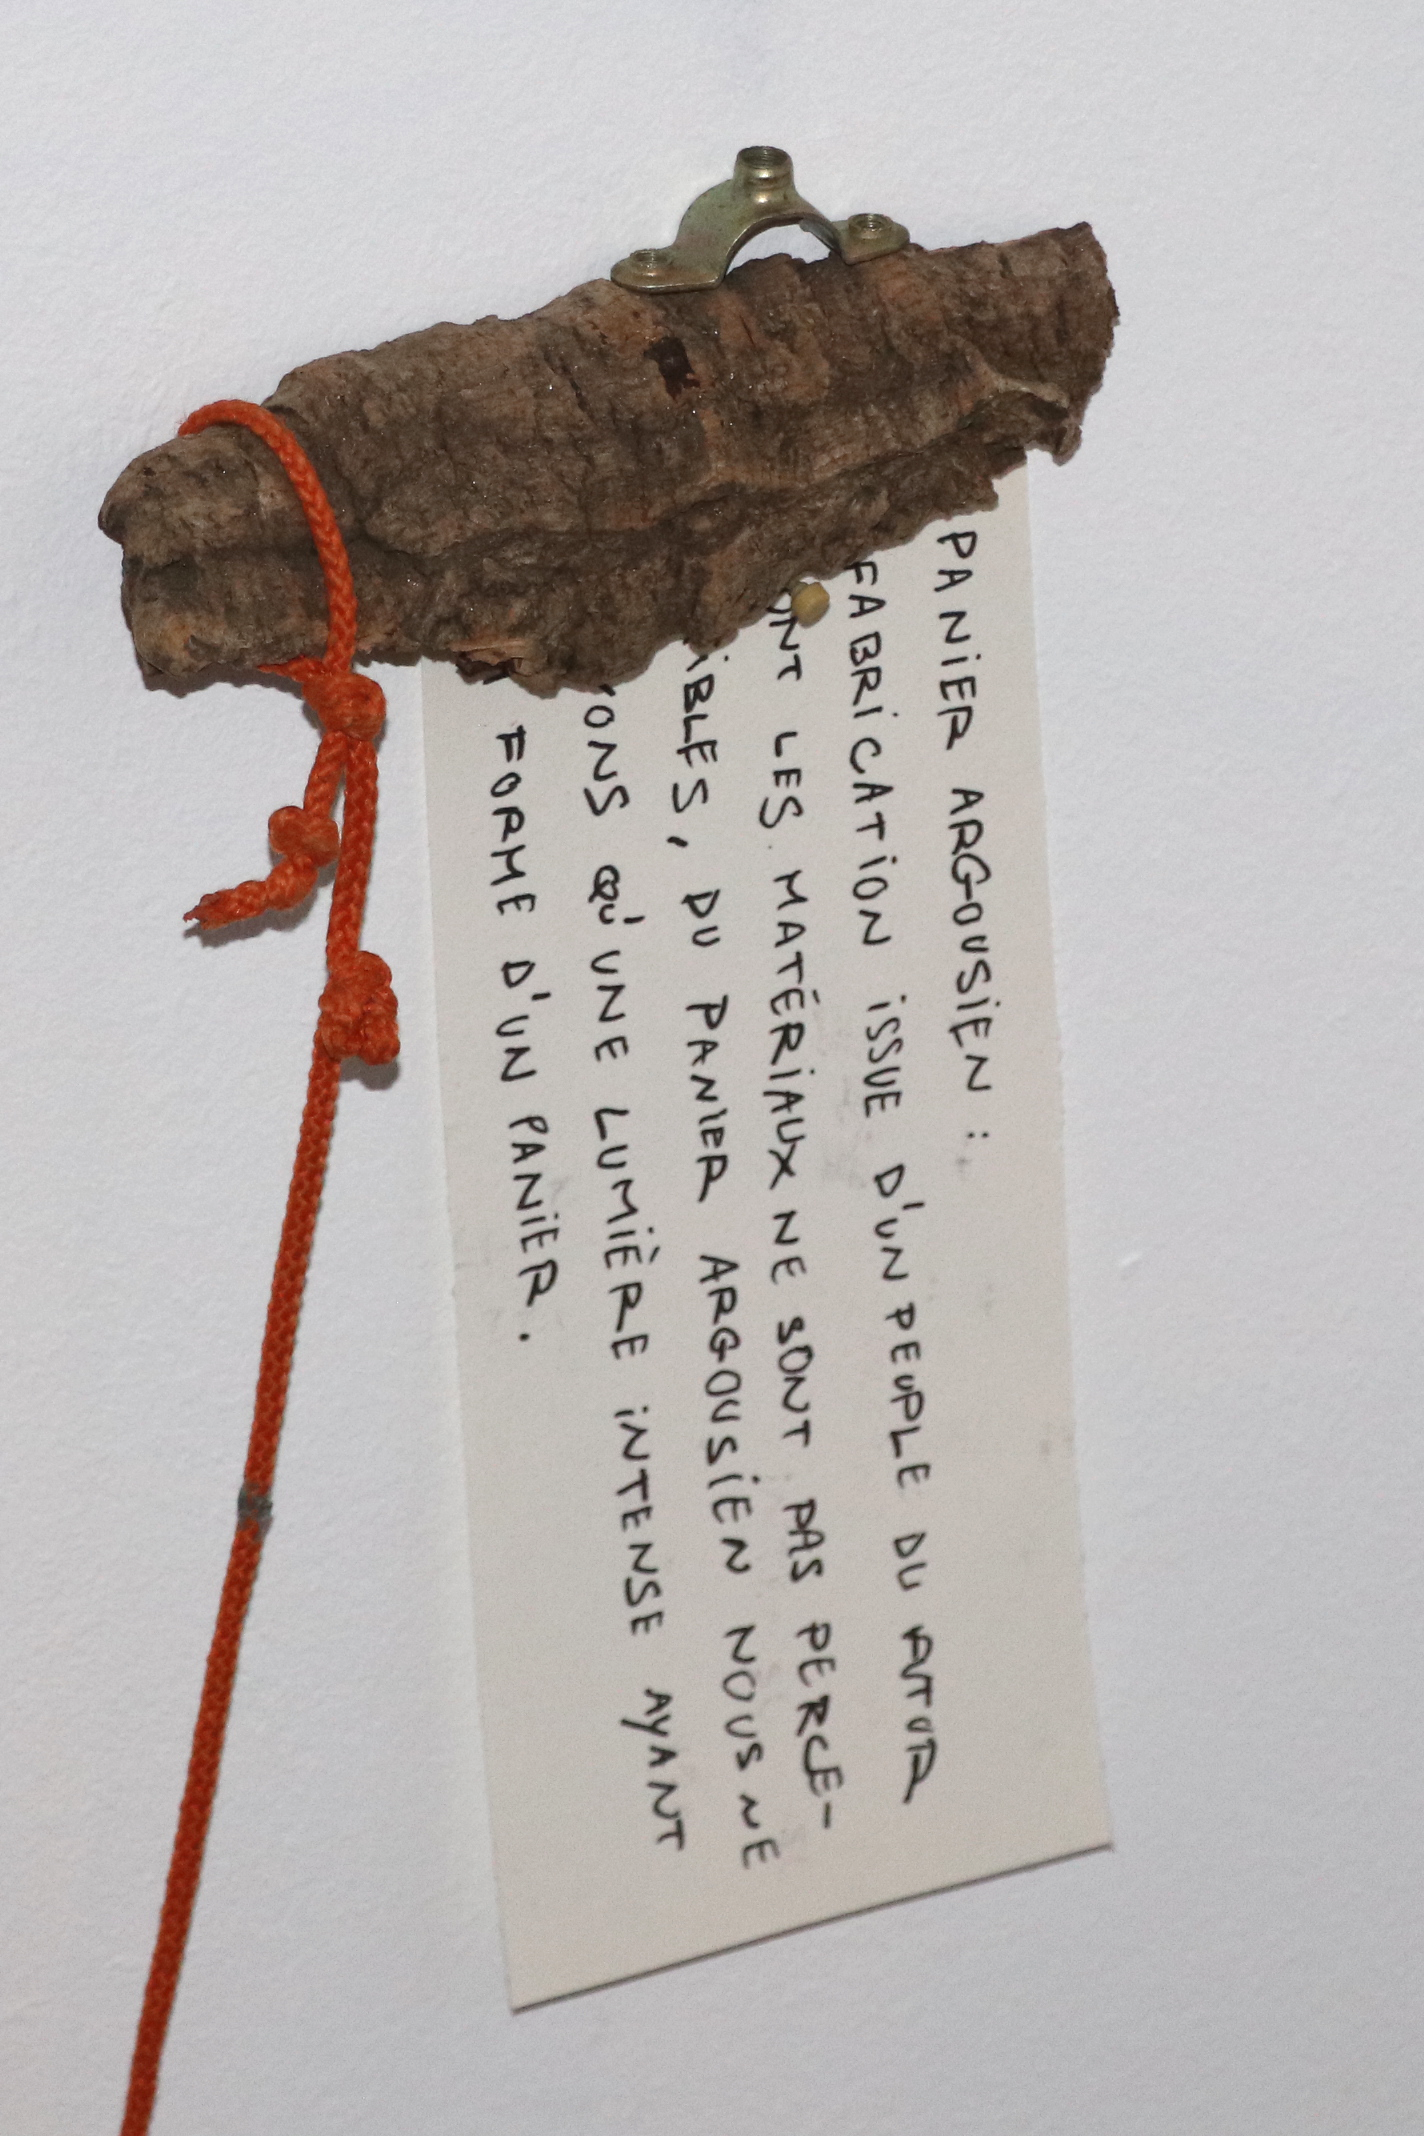 PANIER ARGOUSIEN :
FABRICATION ISSUE D'UN PEUPLE DU
ONT LES MATÉRIAUX NE SONT PAS PERCE-
IBLES, DU PANIER ARGOUSIEN NOUS NE
YONS QU'UNE LUMIÈRE INTENSE AYANT
FORME D'UN PANIER.